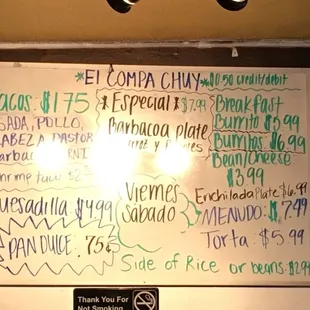 *El COMPA CHUY* $0.50 credit/debit
ACOS: $1.75
SADA, POLLO,
ABEZA PASTOR
arbac
shrimp taco $2
uesadilla $4.99
PAN DULCE: .75¢
*Especial* $7.99
Barbacoa plate
y
Viernes
Sabado
Breakfast
Burrito $3.99
Burritos $6.99
Bean/cheese
$3.99
Enchilada Plate $6.99
MENUDO: $7.99
Torta: $5.99
Side of Rice or beans: $2.99
Thank You For
Not Smoking